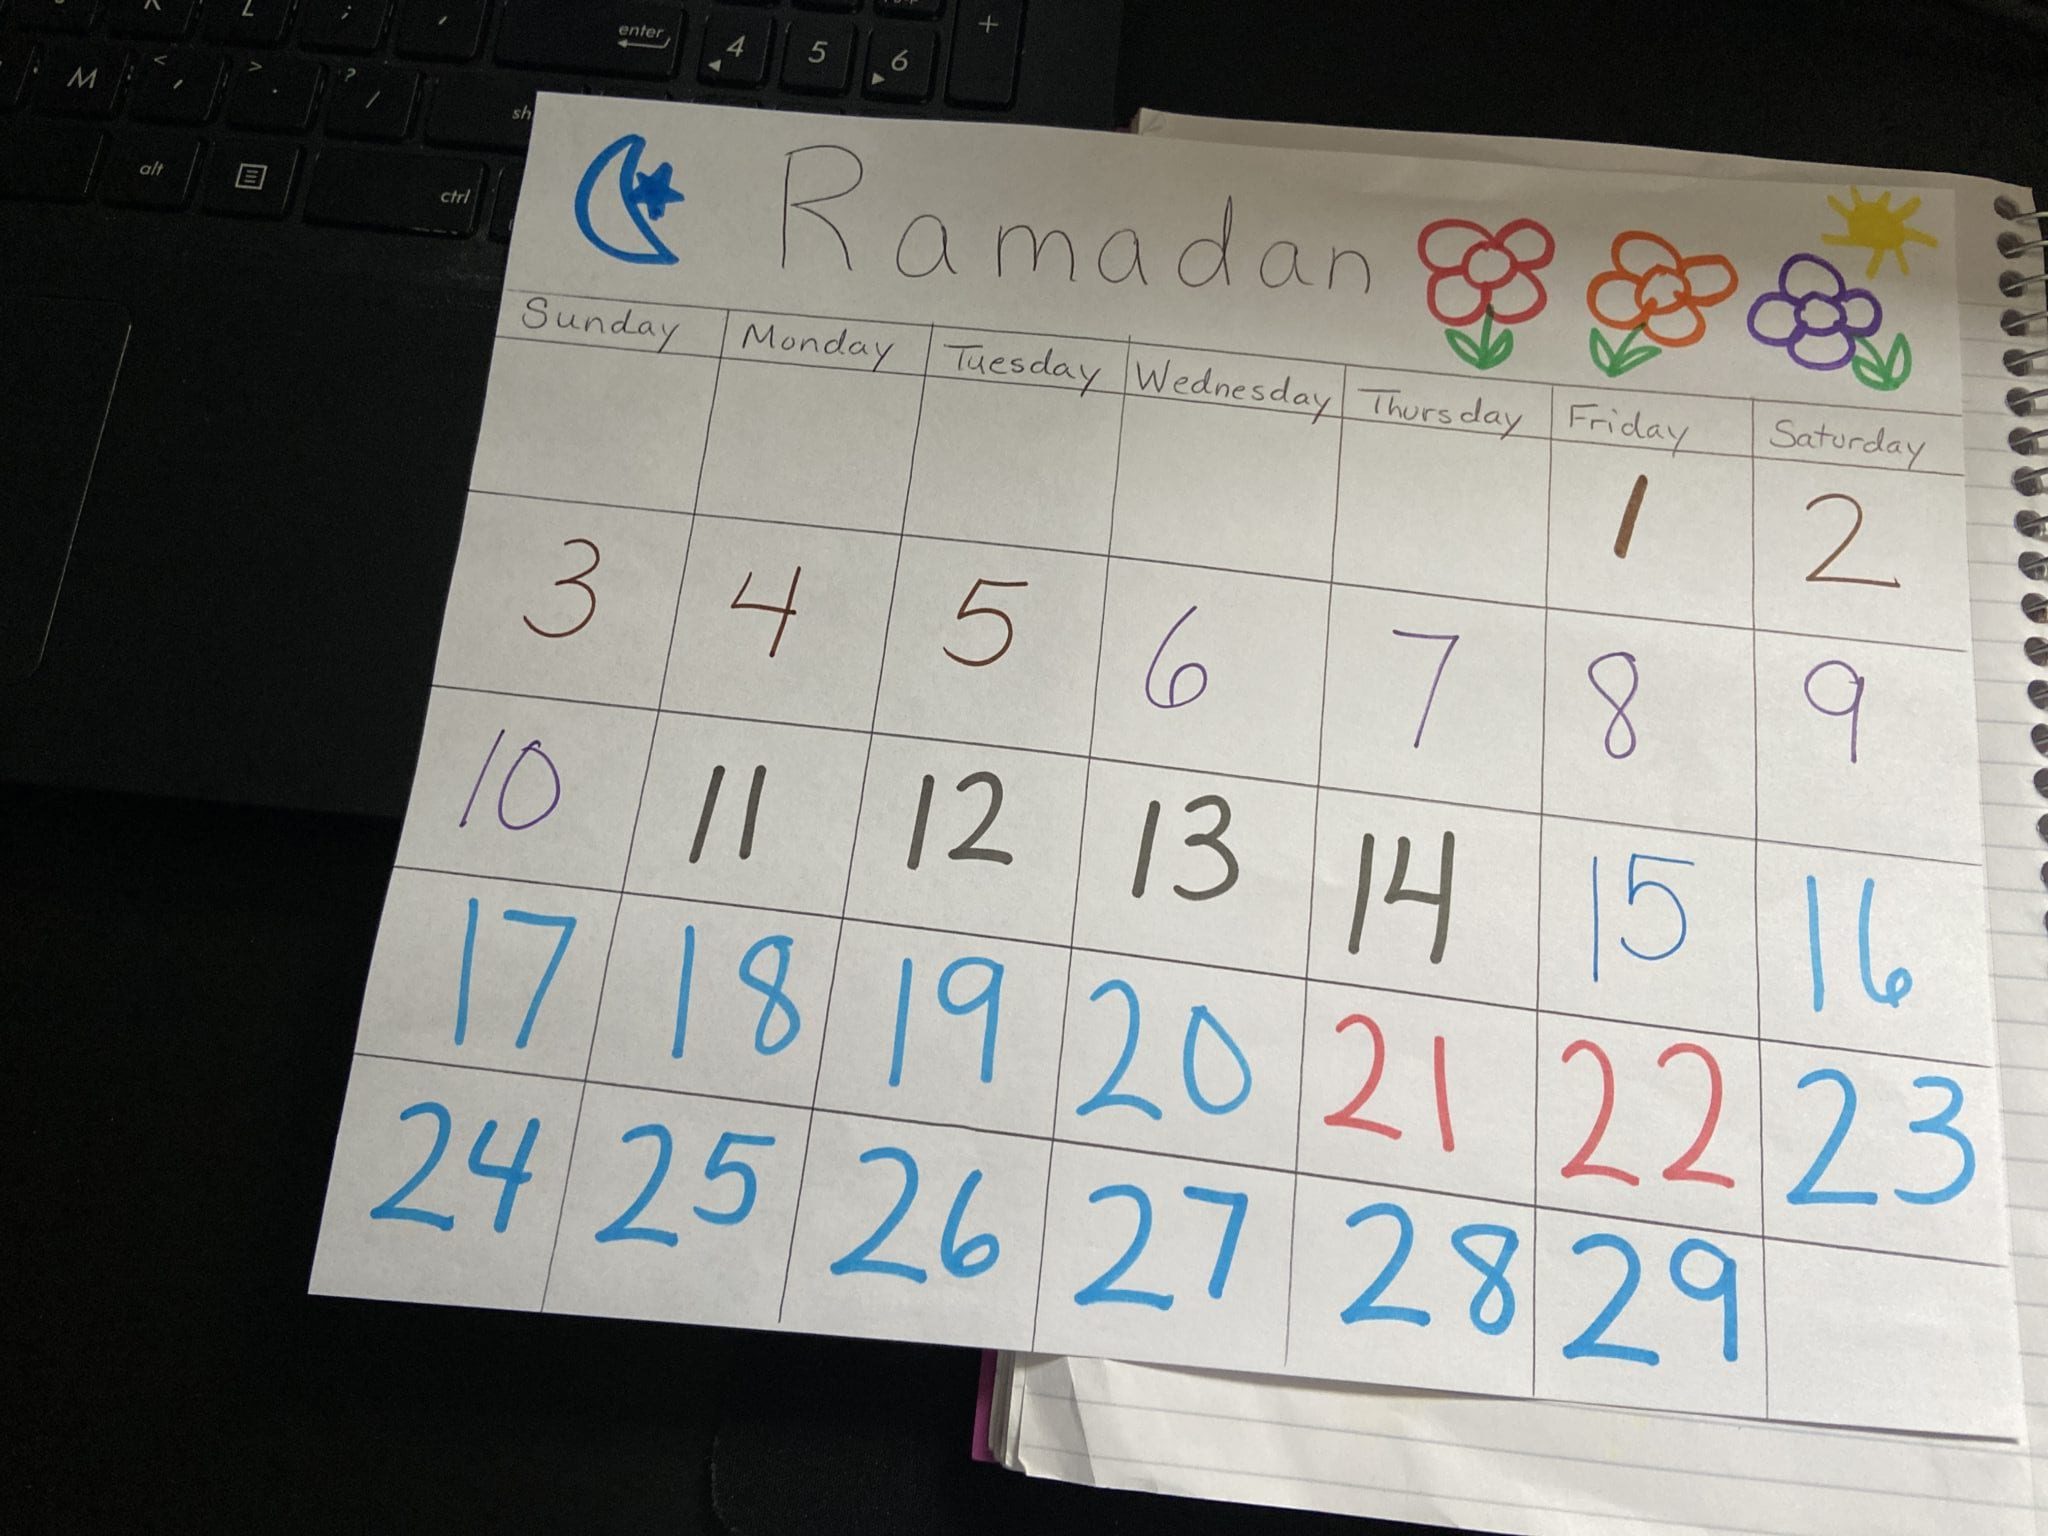 K L ; ,
enter
4 5 6 +
M < , > . ? / sh
alt ctrl
Ramadan
Sunday Monday Tuesday Wednesday Thursday Friday Saturday
1 2
3 4 5 6 7 8 9
10 11 12 13 14 15 16
17 18 19 20 21 22 23
24 25 26 27 28 29